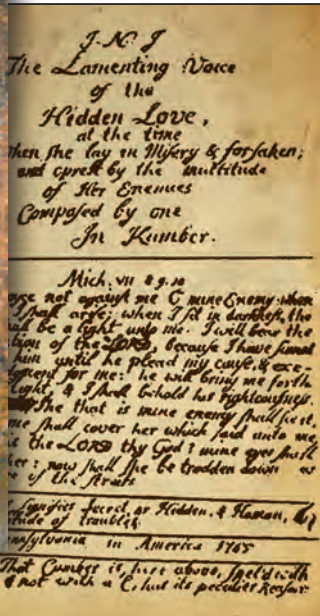 J. N. J
The Lamenting Voice
of the
Hidden Love,
at the time
When she lay in Misery & forsaken;
and oprest by the multitude
of Her Enemies
Composed by one
In Kumber.
Mich. vii 8 9. 10
not against me O mine Enemy: when
I shall arise; when I sit in darkness, the
shall be a light unto me. I will bear the
of the LORD, because I have sinned
him until he plead my cause, & exe-
for me: he will bring me forth
light, & I shall behold his righteousness.
She that is mine enemy shall see it,
shall cover her which said unto me,
is the LORD thy God? mine eyes shall
her: now shall she be trodden down as
of the streets
signifies secret, or Hidden, &
of troubles.
in America 1765
That Cumber is, here above, spel'd with
not with a C, hat its peculiar Reason.